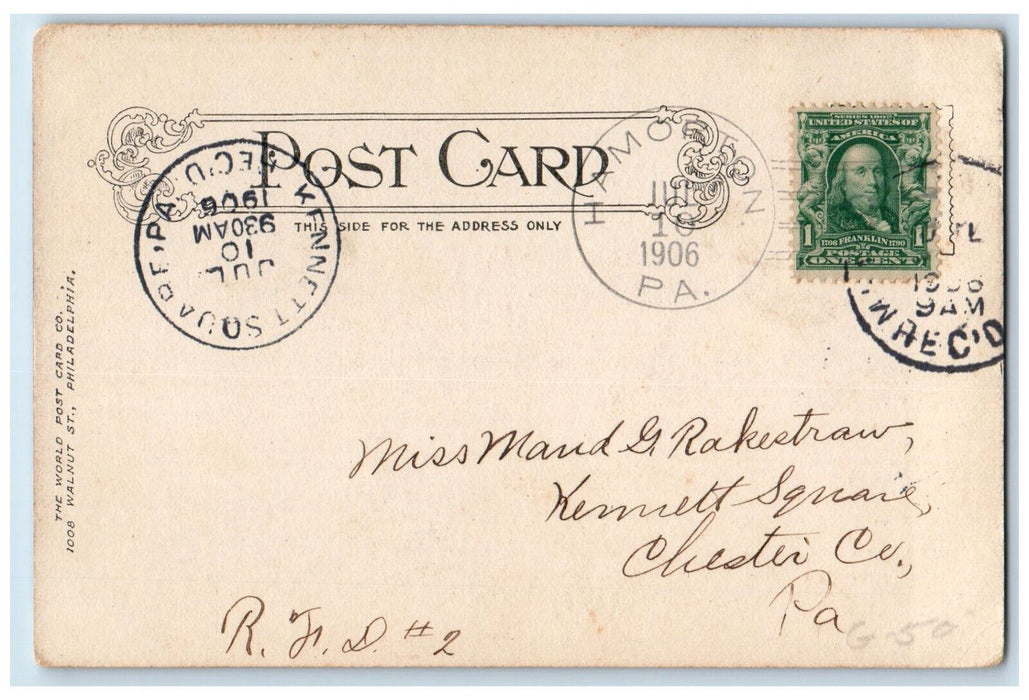 POST CARD
THIS SIDE FOR THE ADDRESS ONLY
KENNETT SQUARE, PA. REC'D.
JUL
10
930AM
1906
HAMORTON
JUL
10
1906
PA.
SERIES 1902
UNITED STATES OF
AMERICA
1 1
1706 FRANKLIN 1790
POSTAGE
ONE CENT
JUL
1906
9 AM
REC'D
THE WORLD POST CARD CO.
1008 WALNUT ST., PHILADELPHIA.
Miss Maud G. Rakestraw,
Kennett Square,
Chester Co.,
Pa
R. F. D. #2
G-50